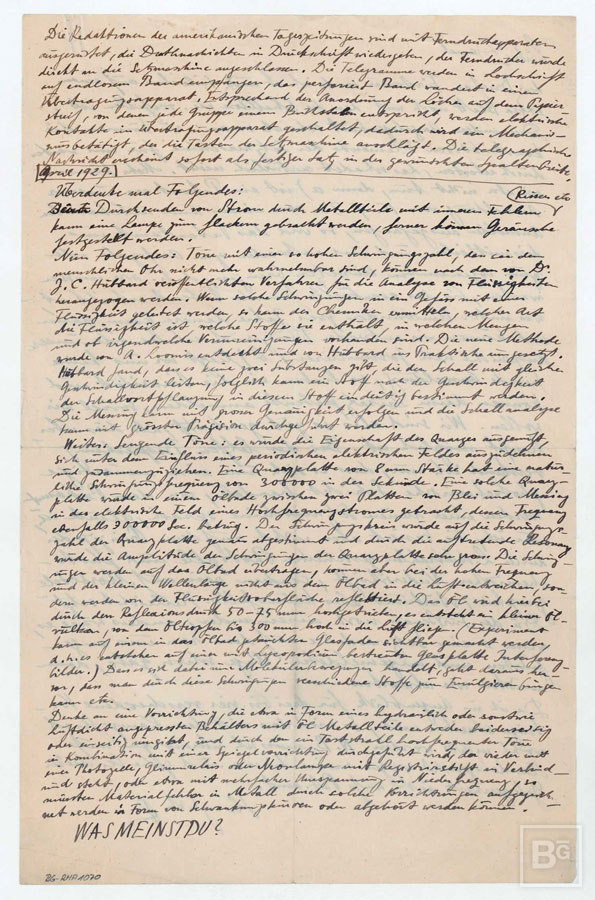 Die Redaktionen der amerikanischen Tageszeitungen sind mit Ferndruckapparaten
ausgerüstet, die Drahtnachrichten in Druckschrift wiedergeben, der Ferndrucker wurde
direkt an die Setzmaschine angeschlossen. Die Telegramme werden in Lochschrift
auf endlosem Band empfangen, das perforiert Band wandert in einen
Übertragungsapparat, Entsprechend der Anordnung der Löcher auf dem Papier-
streif, von denen jede Gruppe einem Buchstaben entspricht, werden elektrische
Kontakte im Übertragungsapparat geschaltet, dadurch wird ein Mechanis-
mus betätigt, der die Tasten der Setzmaschine anschlägt. Die telegraphische
Nachricht erscheint sofort als fertiger Satz in der gewünschten Spaltenbreite.
April 1929.
Überdenke mal Folgendes: (Risse etc
Durchsenden von Strom durch Metallteile mit inneren Fehlern
kann eine Lampe zum flackern gebracht werden, ferner können Geräusche
festgestellt werden.
Nun Folgendes: Töne mit einer so hohen Schwingungszahl, dass sie dem
menschlichen Ohr nicht mehr wahrnehmbar sind, können nach dem von Dr.
J. C. Hubbard veröffentlichten Verfahren für die Analyse von Flüssigkeiten
herangezogen werden. Wenn solche Schwingungen in ein Gefäss mit einer
Flüssigkeit geleitet werden, so kann der Chemiker ermitteln, welcher Art
die Flüssigkeit ist, welche Stoffe sie enthält, in welchen Mengen
und ob irgendwelche Verunreinigungen vorhanden sind. Die neue Methode
wurde von A. Loomis entdeckt und von Hubbard ins Praktische umgesetzt.
Hubbard fand, dass es keine zwei Substanzen gibt, die den Schall mit gleicher
Geschwindigkeit leiten, folglich kann ein Stoff nach der Geschwindigkeit
der Schallfortpflanzung in diesem Stoff eindeutig bestimmt werden.
Die Messung kann mit grosser Genauigkeit erfolgen und die Schallanalyse
kann mit grösster Präzision durchgeführt werden.
Weiter: Sengende Töne: es wurde die Eigenschaft des Quarzes ausgenutzt,
sich unter dem Einfluss eines periodischen elektrischen Feldes auszudehnen
und zusammenzuziehen. Eine Quarzplatte von 8 mm Stärke hat eine natür-
liche Schwingungsfrequenz von 300000 in der Sekunde. Eine solche Quarz-
platte wurde in einem Ölbade zwischen zwei Platten von Blei und Messing
in das elektrische Feld eines Hochfrequenzstromes gebracht, dessen Frequenz
ebenfalls 300000 Sec. betrug. Der Schwingungskreis wurde auf die Schwingungs-
zahl der Quarzplatte genau abgestimmt und durch die auftretende Resonanz
wurde die Amplitude der Schwingungen der Quarzplatte sehr gross. Die Schwin-
gungen werden auf das Ölbad übertragen, können aber bei der hohen Frequenz
und der kleinen Wellenlänge nicht aus dem Ölbad in die Luft entweichen, son
dern werden von der Flüssigkeitsoberfläche reflektiert. Das Öl wird hierbei
durch den Reflexionsdruck 50-75 mm hochgetrieben, es entsteht ein kleiner Öl-
vulkan, von dem Öltropfen bis 300 mm hoch in die Luft fliegen. (Experiment
kann auf einem in das Ölbad getauchten Glasfaden sichtbar gemacht werden
d.h. es entstehen auf einer mit Lycopodium bestreuten Glasplatte Interferenz
bilder.) Dass es sich dabei um Molekülarbewegungen handelt, geht daraus her-
vor, dass man durch diese Schwingungen verschiedene Stoffe zum Emulgieren bringen
kann etc.
Denke an eine Vorrichtung, die etwa in Form eines hydraulisch oder sonstwie
luftdicht angepressten Behälters mit Öl Metallteile entweder beiderseitig
oder einseitig umgibt, und durch den ein Taststrahl hochfrequenter Töne
in Kombination mit einer Spiegelvorrichtung durchgeführt wird, der wieder mit
einer Photozelle, Glimmrelais oder Morselampe mit Registrierschrift in Verbind-
und steht, oder etwa mit mehrfacher Umspannung in Niederfrequenz, so
müssten Materialfehler in Metall durch solche Vorrichtungen aufgezeich-
net werden in Form von Schwankungskurven oder abgehört werden können.
WAS MEINST DU?
BG-RHA 1070
BG